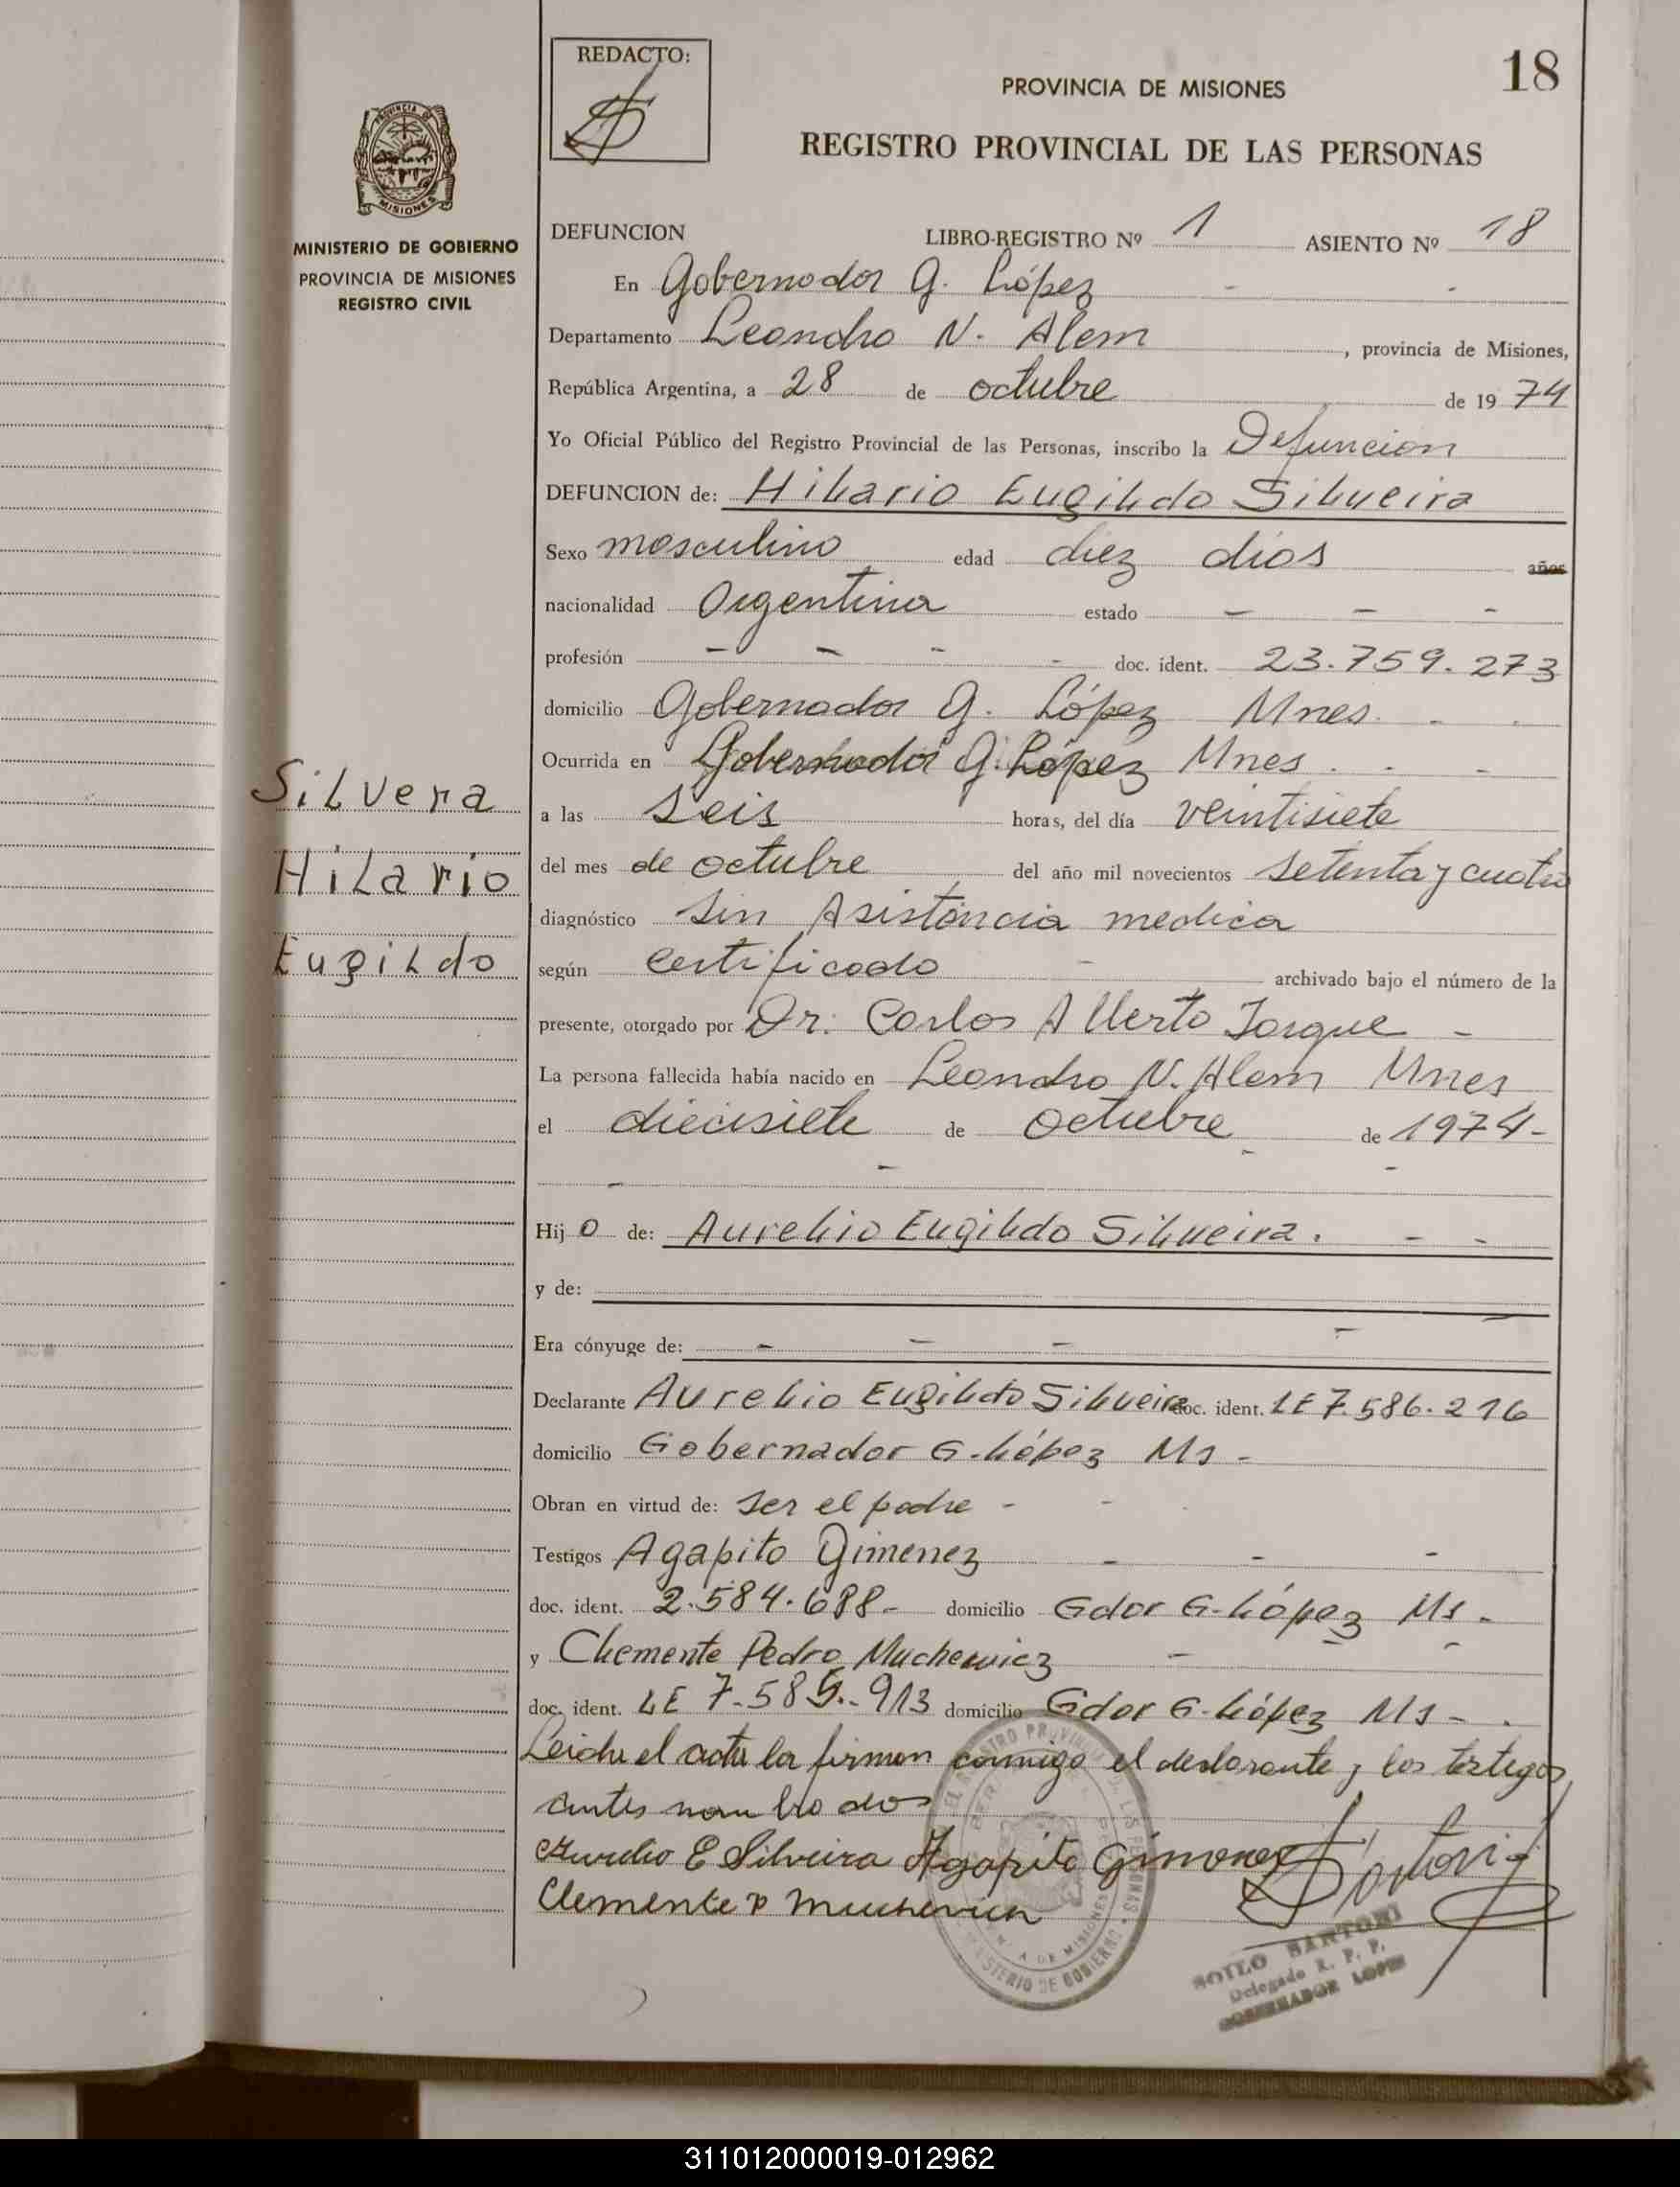 18
REDACTO:
PROVINCIA DE MISIONES
REGISTRO PROVINCIAL DE LAS PERSONAS
MISIONES
MINISTERIO DE GOBIERNO
PROVINCIA DE MISIONES
REGISTRO CIVIL
Silvera
Hilario
Eugildo
DEFUNCION LIBRO-REGISTRO Nº 1 ASIENTO Nº 18
En Gobernador G. López - -
Departamento Leandro N. Alem, provincia de Misiones,
República Argentina, a 28 de octubre de 1974
Yo Oficial Público del Registro Provincial de las Personas, inscribo la Defuncion
DEFUNCION de: Hilario Eugildo Silveira
Sexo masculino edad diez dias años
nacionalidad Argentina estado - - -
profesión - - - - doc. ident. 23.759.273
domicilio Gobernador G. López Mnes. - .
Ocurrida en Gobernador G. López Mnes. - -
a las seis horas, del día veintisiete
del mes de octubre del año mil novecientos setenta y cuatro
diagnóstico sin Asistencia medica
según certificado - archivado bajo el número de la
presente, otorgado por Dr. Carlos Alberto Jorque -
La persona fallecida había nacido en Leandro N. Alem Mnes
el diecisiete de octubre de 1974-
- - - -
Hijo de: Aurelio Eugildo Silveira. - -
y de:
Era cónyuge de: - - - -
Declarante Aurelio Eugildo Silveira doc. ident. LE 7.586.216
domicilio Gobernador G. López Ms -
Obran en virtud de: ser el padre - -
Testigos Agapito Gimenez - - -
doc. ident. 2.584.688- domicilio Gdor G. López Ms -
y Clemente Pedro Muchewicz - -
doc. ident. LE 7.585.913 domicilio Gdor G. López Ms - .
Leida el acta la firman conmigo el declarante y los testigos
antes nombrados
Aurelio E Silveira Agapito Gimenez Sartori
Clemente P
MINISTERIO DE GOBIERNO
SOILO SARTORI
Delegado R. P. P.
GOBERNADOR LOPEZ
311012000019-012962